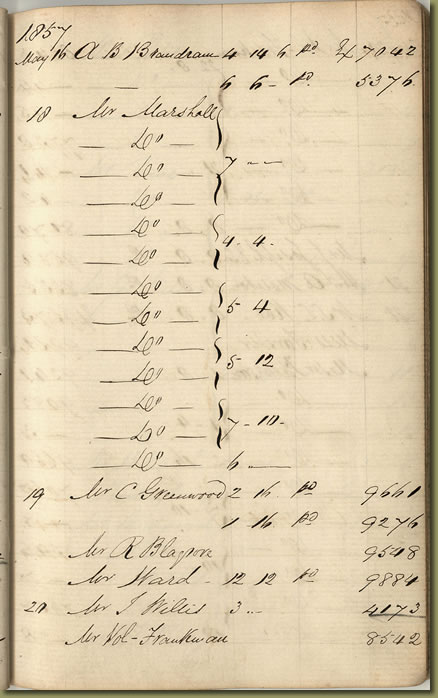 1857
May 16 A B Brandram 4 14 6 pd 7042
— 6 6 - pd 5376
18 Mr Marshall
— Do —
— Do — 7 - -
— Do —
— Do —
— Do — 4 - 4 -
— Do —
— Do — 5 4
— Do —
— Do — 5 12
— Do —
— Do — 7 - 10 -
— Do — 6 —
19 Mr C Greenwood 2 16 pd 9661
1 16 pd 9276
Mr R Blagrove 9548
Mr Ward - 12 12 pd 9884
20 Mr J Willis 3 - - 4173
Mr Vol- 8542